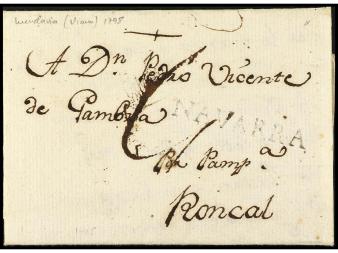 Mendavia (Viana) 1795
A Dn. Pedro Vicente
de Gambra
NAVARRA
Pr Pamp.a
Roncal